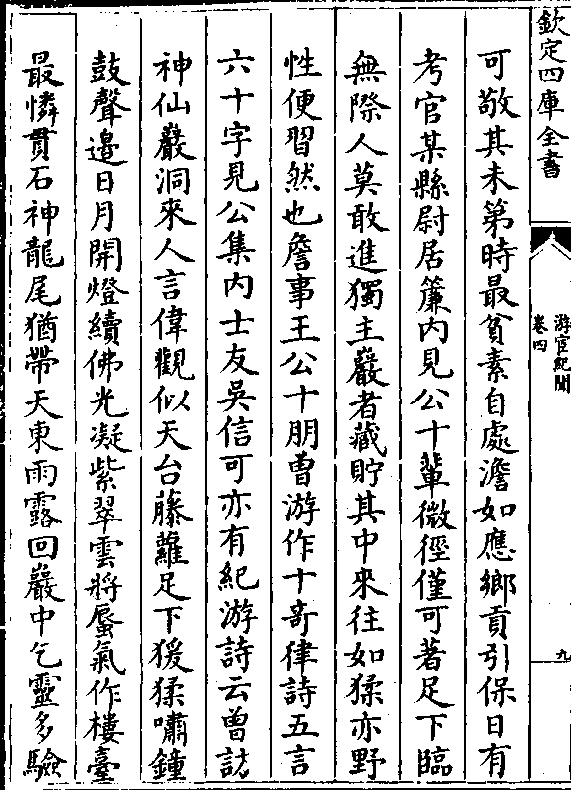 欽定四庫全書
游宦紀聞
卷四
九
可敬其未第時最貧素自處澹如應鄉貢引保日有
考官某縣尉居簾内見公十輩微徑僅可著足下臨
無際人莫敢進獨主巖者藏貯其中來往如猱亦野
性便習然也詹事王公十朋曽游作十竒律詩五言
六十字見公集内士友吳信可亦有紀游詩云曽訪
神仙巖洞來人言偉觀似天台藤蘿足下猨猱嘯鐘
鼓聲邉日月開燈續佛光凝紫翠雲將蜃氣作樓臺
最憐貫石神龍尾猶帶天東雨露回巖中乞靈多驗